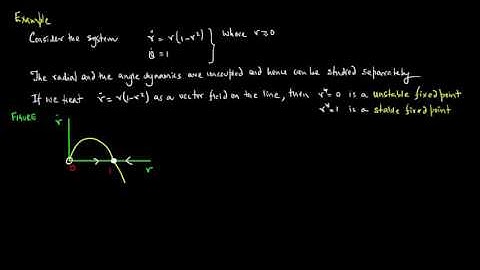 Example
Consider the system ṙ = r(1-r²) } where r≥0
θ̇ = 1
The radial and the angle dynamics are uncoupled and hence can be studied separately
If we treat ṙ = r(1-r²) as a vector field on the line, then r*=0 is a unstable fixed point
r*=1 is a stable fixed point
FIGURE
ṙ
0 1 r